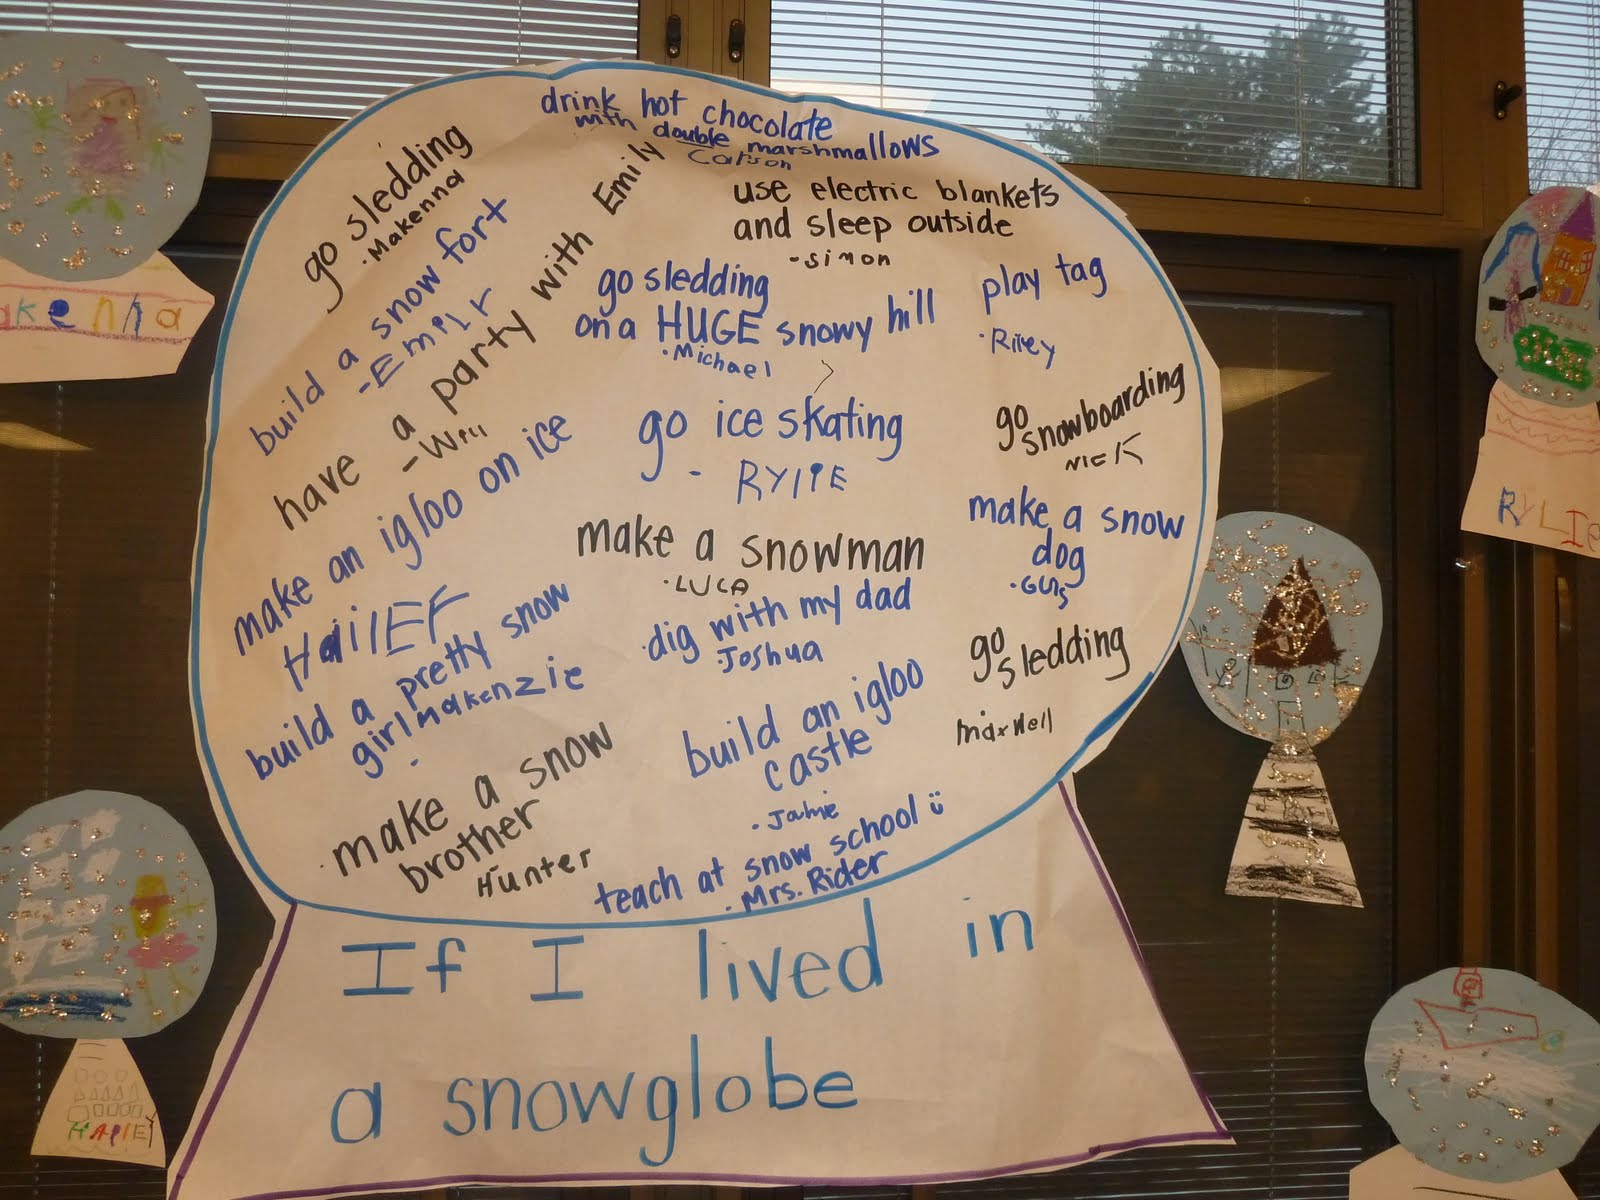 drink hot chocolate
with double marshmallows
Carson
go sledding
·Makenna
use electric blankets
and sleep outside
-simon
build a snow fort
-Emily
have a party with Emily
-Will
go sledding
on a HUGE snowy hill
·Michael
play tag
·Riley
make an igloo on ice
go ice skating
- RYlIE
go
snowboarding
NICK
make a snowman
·LUCA
make a snow
dog
build a pretty snow
girl makenzie
·dig with my dad
·Joshua
go
sledding
maxwell
build an igloo
castle
·Jamie
·make a snow
brother
Hunter
teach at snow school
·Mrs. Rider
If I lived in
a snowglobe
akenna
RYLIE